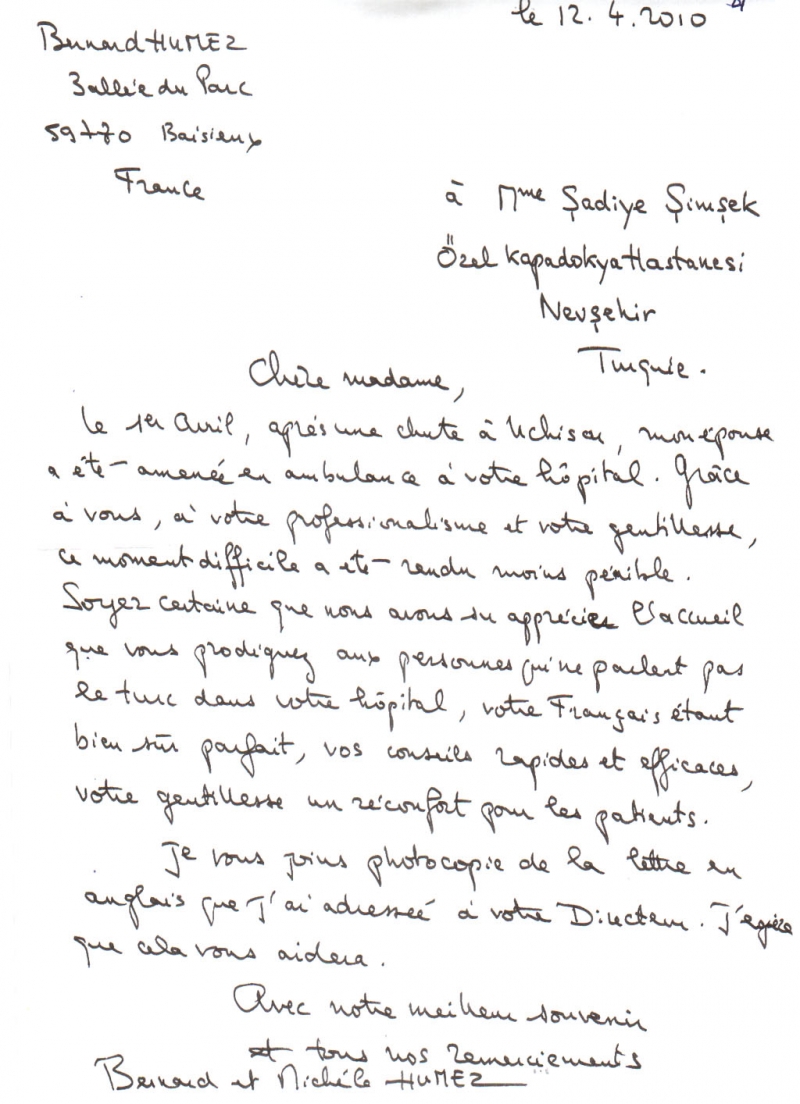 le 12.4.2010
Bernard HUMEZ
3 allée du Parc
59770 Baisieux
France
à Mme Şadiye Şimşek
Özel Kapadokya Hastanesi
Nevşehir
Turquie.
Chère madame,
Le 1er Avril, après une chute à Uchisar, mon épouse
a été amenée en ambulance à votre hôpital. Grâce
à vous, à votre professionalisme et votre gentillesse,
ce moment difficile a été rendu moins pénible.
Soyez certaine que nous avons su apprécier l'accueil
que vous prodiguez aux personnes qui ne parlent pas
le turc dans votre hôpital, votre Français étant
bien sûr parfait, vos conseils rapides et efficaces,
votre gentillesse un réconfort pour les patients.
Je vous joins photocopie de la lettre en
anglais que j'ai adresseé à votre Directeur. J'espère
que cela vous aidera.
Avec notre meilleur souvenir
et tous nos remerciements
Bernard et Michèle HUMEZ